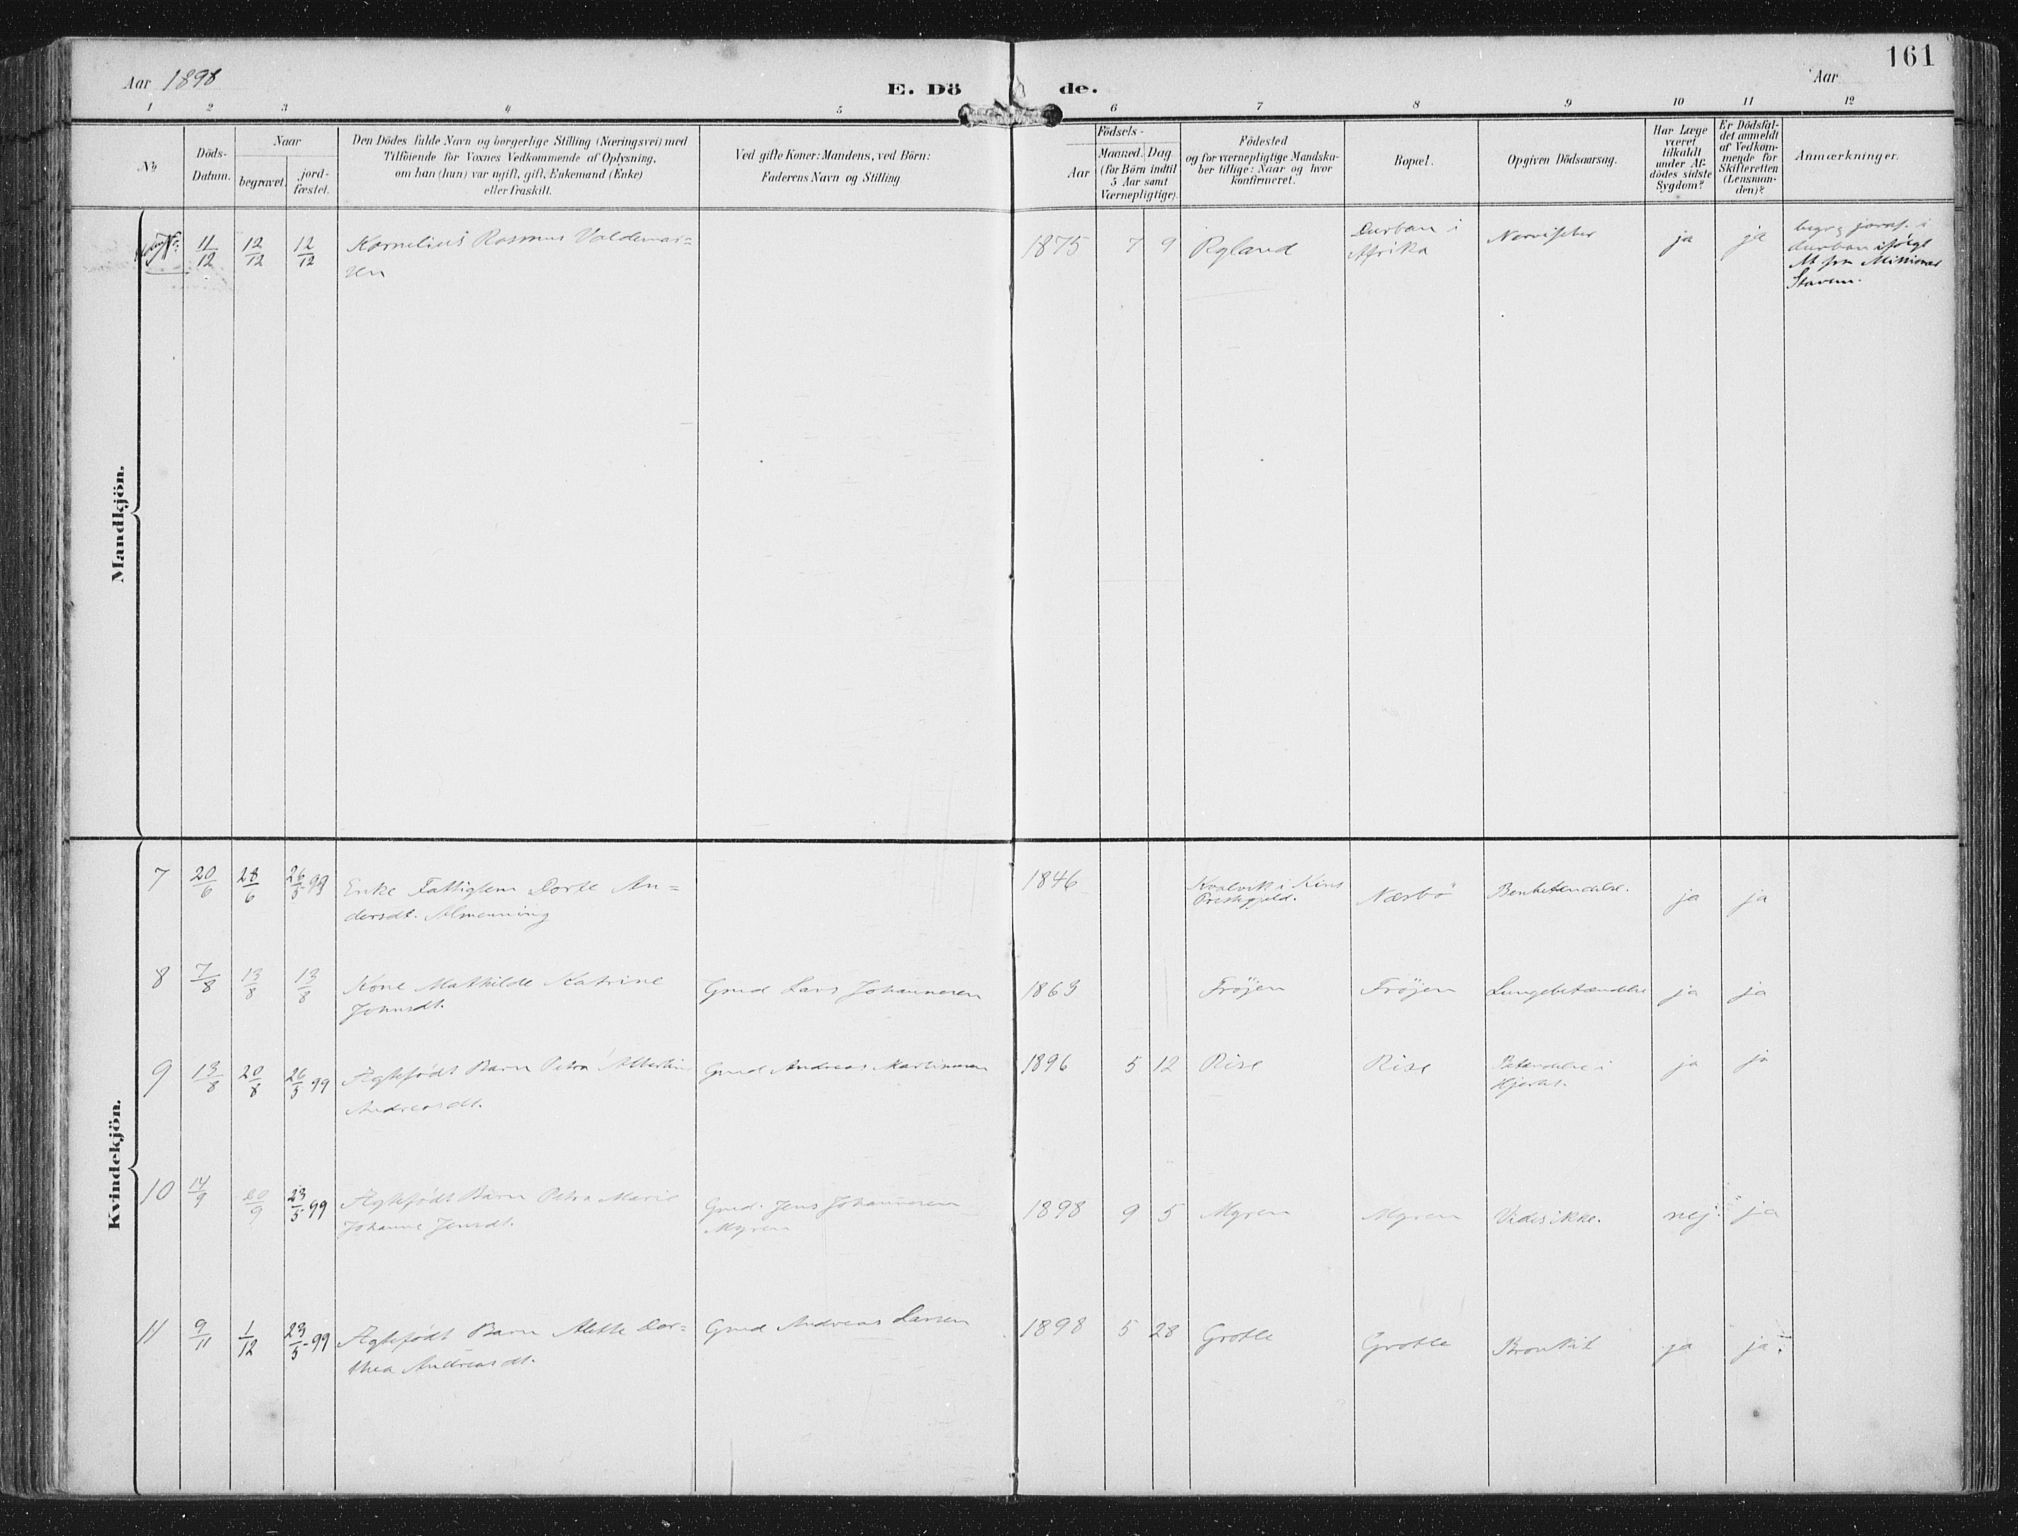 161
Aar 1898
E. Dö de.
Aar
1 2 3 4 5 6 7 8 9 10 11 12
No
Döds-
Datum.
Naar
begravet.
jord-
fæstet.
Den Dödes fulde Navn og borgerlige Stilling (Næringsvei) med
Tilföiende for Voxnes Vedkommende af Oplysning,
om han (hun) var ugift, gift, Enkemand (Enke)
eller fraskilt.
Ved gifte Koner: Mandens, ved Börn:
Faderens Navn og Stilling
Födsels-
Aar
Maaned. Dag
(for Börn indtil
5 Aar samt
Værnepligtige)
Födested
og for værnepligtige Mandska-
ber tillige: Naar og hvor
konfirmeret.
Bopæl.
Opgiven Dödsaarsag.
Har Læge
været
tilkaldt
under Af-
dödes sidste
Sygdom?
Er Dödsfal-
det anmeldt
af Vedkom-
mende for
Skifteretten
(Lensman-
den)?
Anmærkninger.
Mandkjön.
11/12 12/12 12/12 Kornelius Rasmus Valdemar-
sen
1875 7 9 Ryland
Durban i
Afrika
Nervefeber ja ja
begr. g jordf. i
Durban ifølge
At. fra Missionær
Stavem.
Kvindekjön.
7 20/6 28/6 26/5-99 Enke Fattiglem Dorte An-
dersdt. Almenning
1846
Kvalvik i Kins
Prestegjeld.
Nærbö
Benbetændelse.
ja ja
8 7/8 13/8 13/8 Kone Mathilde Katrine
Johnsdt.
Gmd Lars Johannesen 1863 Fröjen Fröjen Lungebetændelse ja ja
9 13/8 20/8 26/5 99 Ægtefödt Barn Petra Albertine
Andreasdt.
Gmd Andreas Martinusen 1896 5 12 Rise Rise
Betændelse i
Hjertet.
ja ja
10 14/9 20/9 23/5-99 Ægtefödt Barn Petra Marie
Johanne Jensdt.
Gmd. Jens Johannesen
Myren
1898 9 5 Myren Myren Vides ikke. nej. ja
11 9/11 1/12 23/5-99 Ægtefödt Barn Alette Dor-
thea Andreasdt.
Gmd Andreas Larsen 1898 5 28 Grotle Grotle Bronkit ja ja.